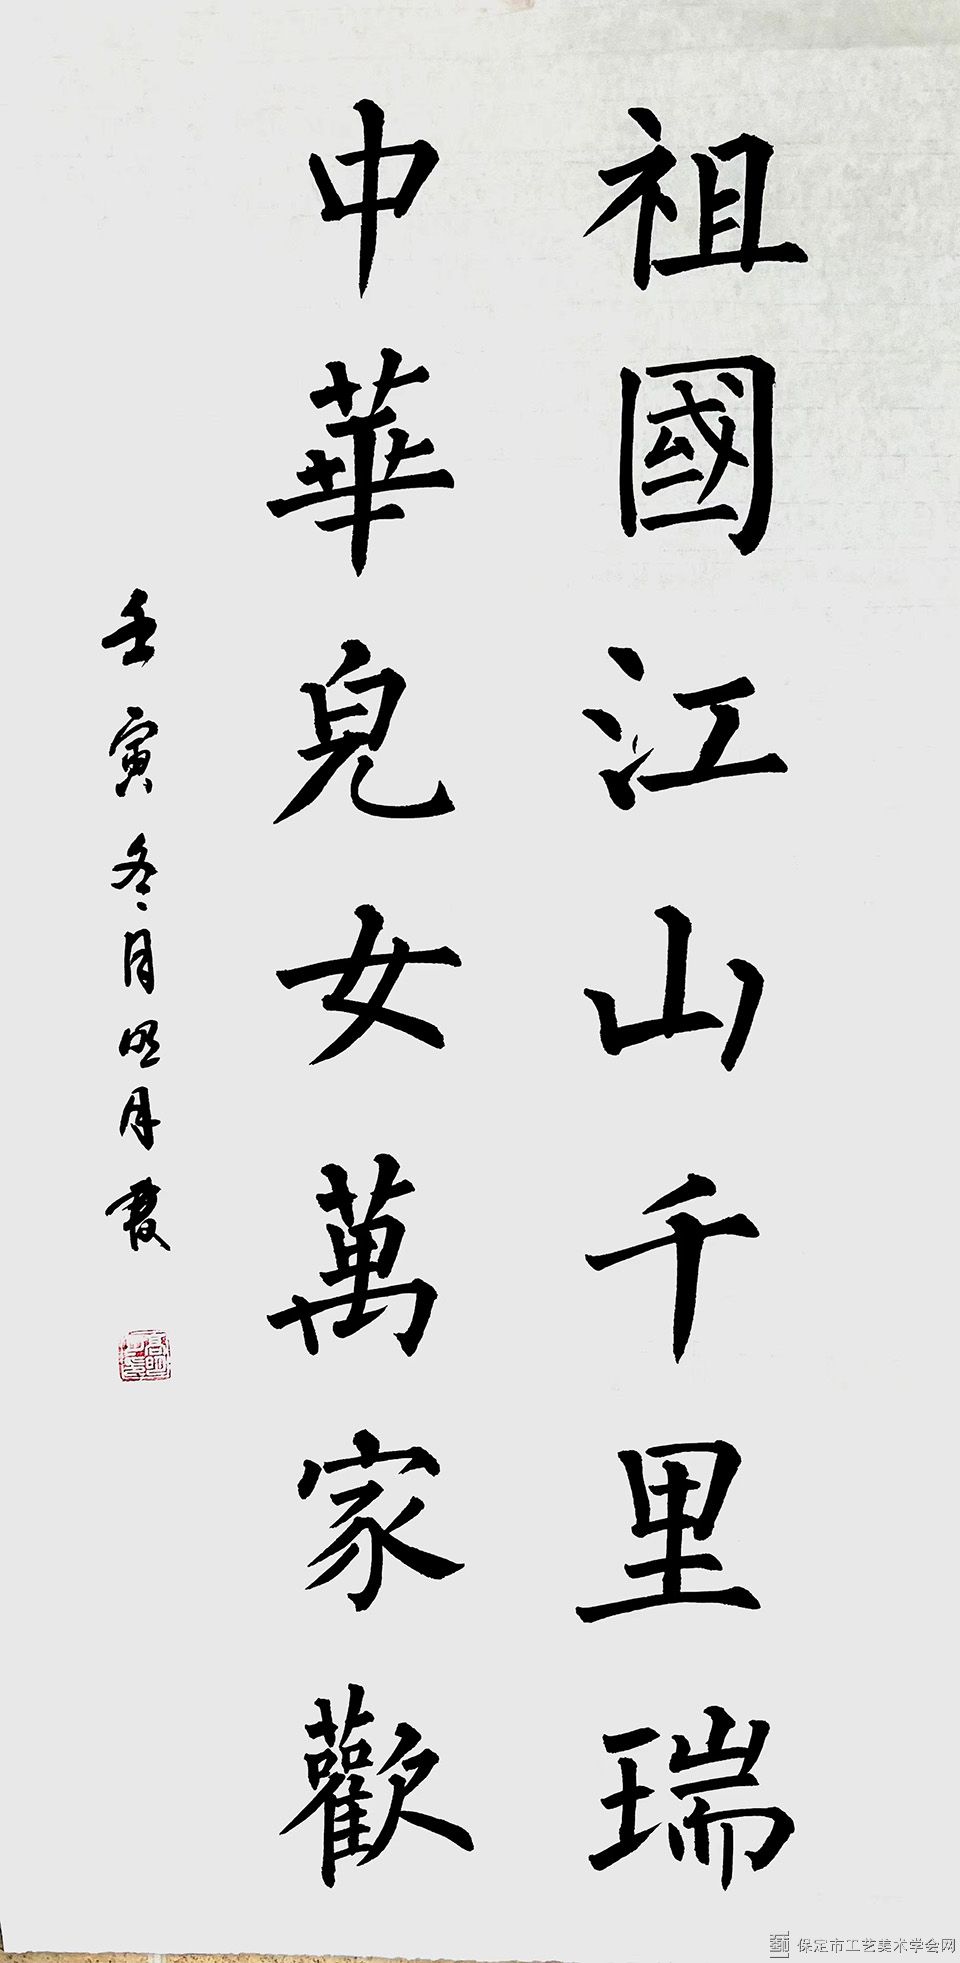 祖國江山千里瑞
中華兒女萬家歡
壬寅冬月明月霞
保定市工艺美术学会网